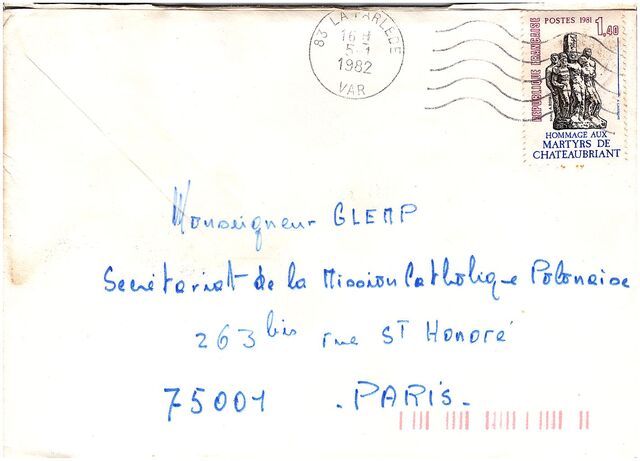 83 LA FARLEDE
16 H
5-1
1982
VAR
POSTES 1981 1,40
REPUBLIQUE FRANÇAISE
HOMMAGE AUX
MARTYRS DE
CHATEAUBRIANT
Monseigneur GLEMP
Secrétariat de la Mission Catholique Polonaise
263 bis rue ST Honoré
75001 - PARIS -